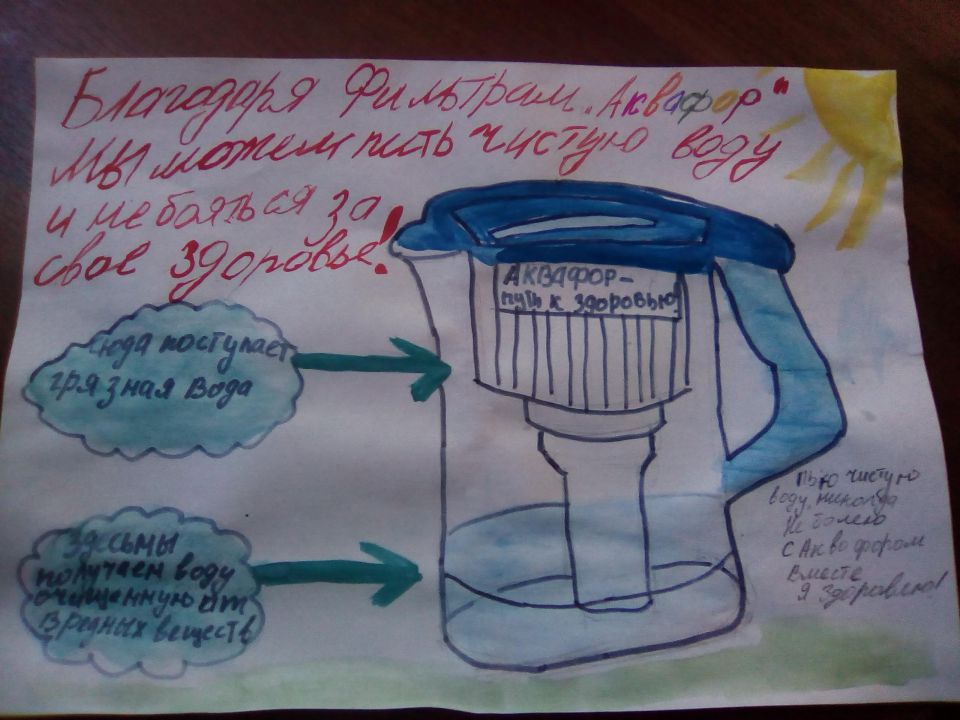 Благодаря Фильтрам „Аквафор"
мы можем пить чистую воду
и не бояться за
свое здоровье!
АКВАФОР-
путь к здоровью
Сюда поступает
грязная вода
Здесь мы
получаем воду
очищенную от
вредных веществ
Пью чистую
воду, никогда
Не болею
С Аквафором
Вместе
Я здоровею!